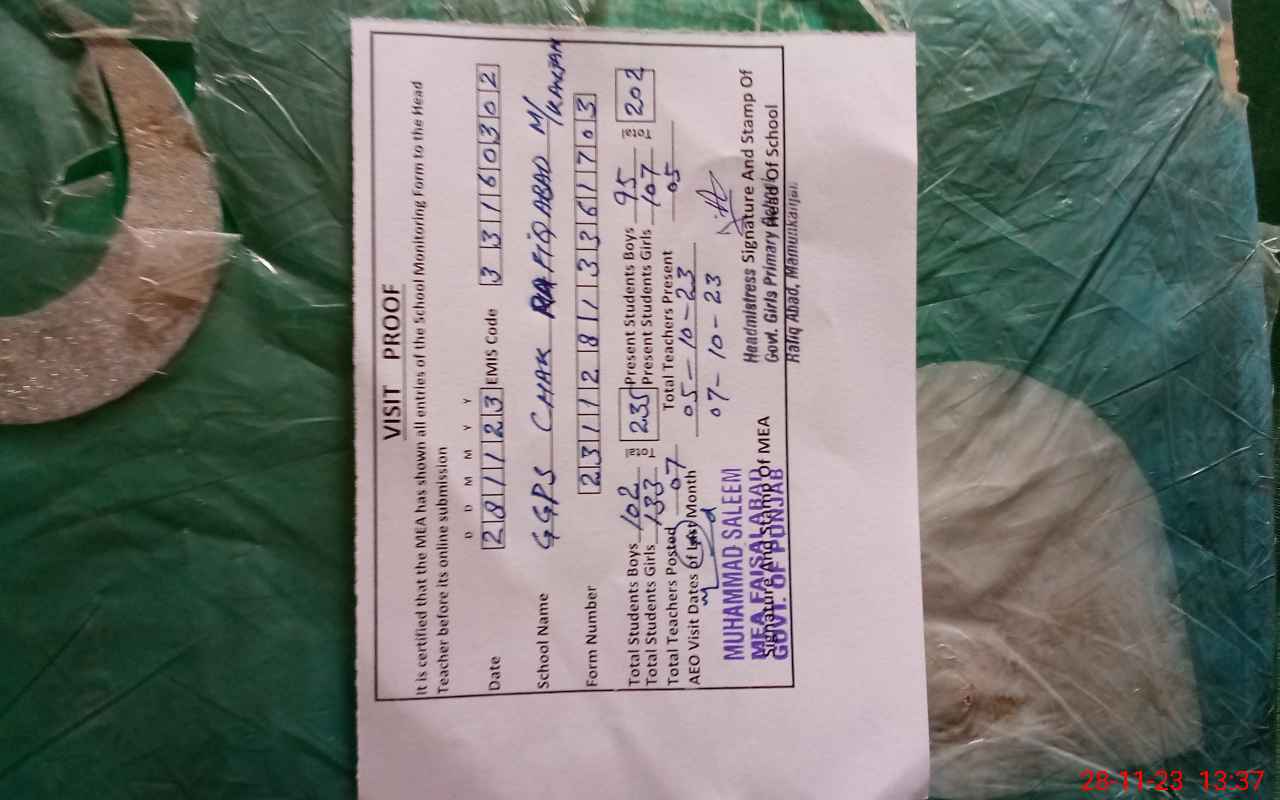 VISIT PROOF
It is certified that the MEA has shown all entries of the School Monitoring Form to the Head
Teacher before its online submission
D D M M Y Y
Date 281123 EMIS Code 33160302
School Name GGPS CHAK RAFIQABAD M/KANJAN
Form Number 23112811336 1703
Total Students Boys 102 Total 235 Present Students Boys 95 Total 202
Total Students Girls 133 Present Students Girls 107
Total Teachers Posted 07 Total Teachers Present 05
AEO Visit Dates of Last Month 05-10-23
07-10-23
MUHAMMAD SALEEM
MEA FAISALABAD
GOVT. OF PUNJAB
Signature And Stamp Of MEA
Signature And Stamp Of
Head Of School
Headmistress
Govt. Girls Primary School
Rafiq Abad, Mamunkanjan
28-11-23 13:37